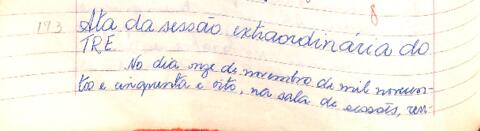 8
193 Ata da sessão extraordinária do
TRE
No dia onze de novembro de mil novecen-
tos e cinquenta e oito, na sala de sessões, reu-